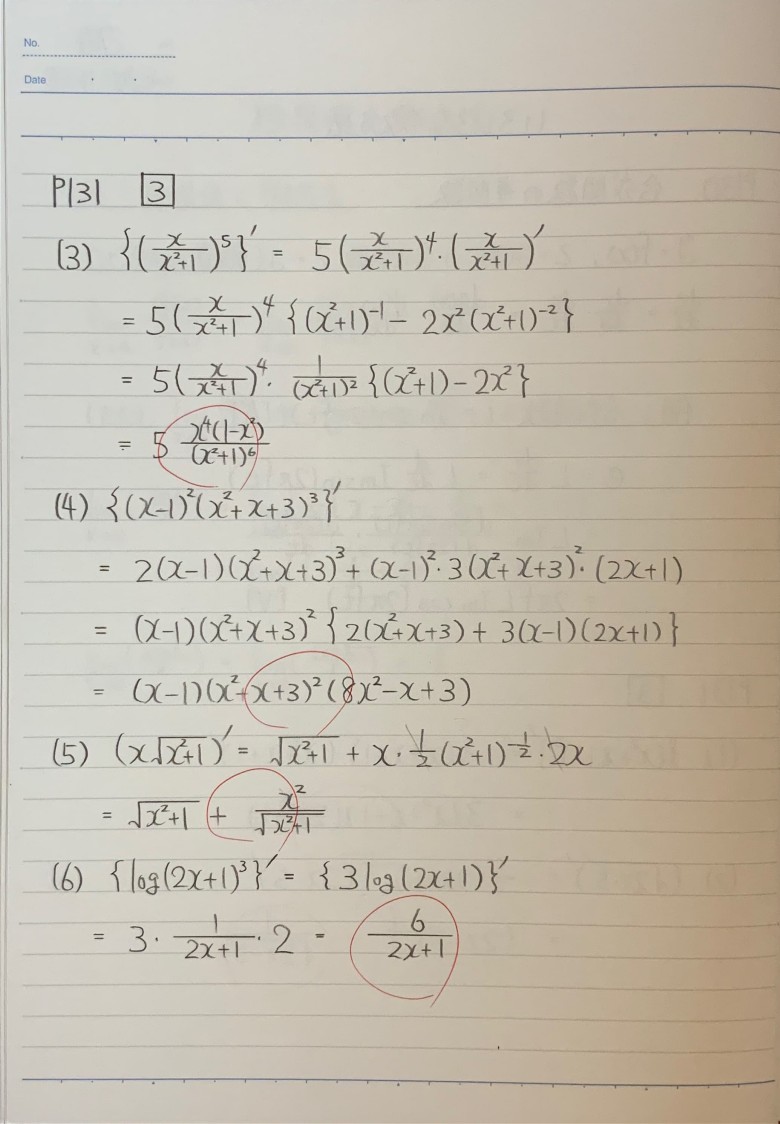 No.
Date
P131 3
(3) {(x/(x²+1))⁵}' = 5(x/(x²+1))⁴·(x/(x²+1))'
= 5(x/(x²+1))⁴{(x²+1)⁻¹ - 2x²(x²+1)⁻²}
= 5(x/(x²+1))⁴· 1/(x²+1)² {(x²+1)-2x²}
= 5 x⁴(1-x²)/(x²+1)⁶
(4) {(x-1)²(x²+x+3)³}'
= 2(x-1)(x²+x+3)³+(x-1)²·3(x²+x+3)²·(2x+1)
= (x-1)(x²+x+3)²{2(x²+x+3)+3(x-1)(2x+1)}
= (x-1)(x²+x+3)²(8x²-x+3)
(5) (x√(x²+1))' = √(x²+1) + x·1/2(x²+1)^(-1/2)·2x
= √(x²+1) + x²/√(x²+1)
(6) {log(2x+1)³}' = {3log(2x+1)}'
= 3· 1/(2x+1) ·2 = 6/(2x+1)